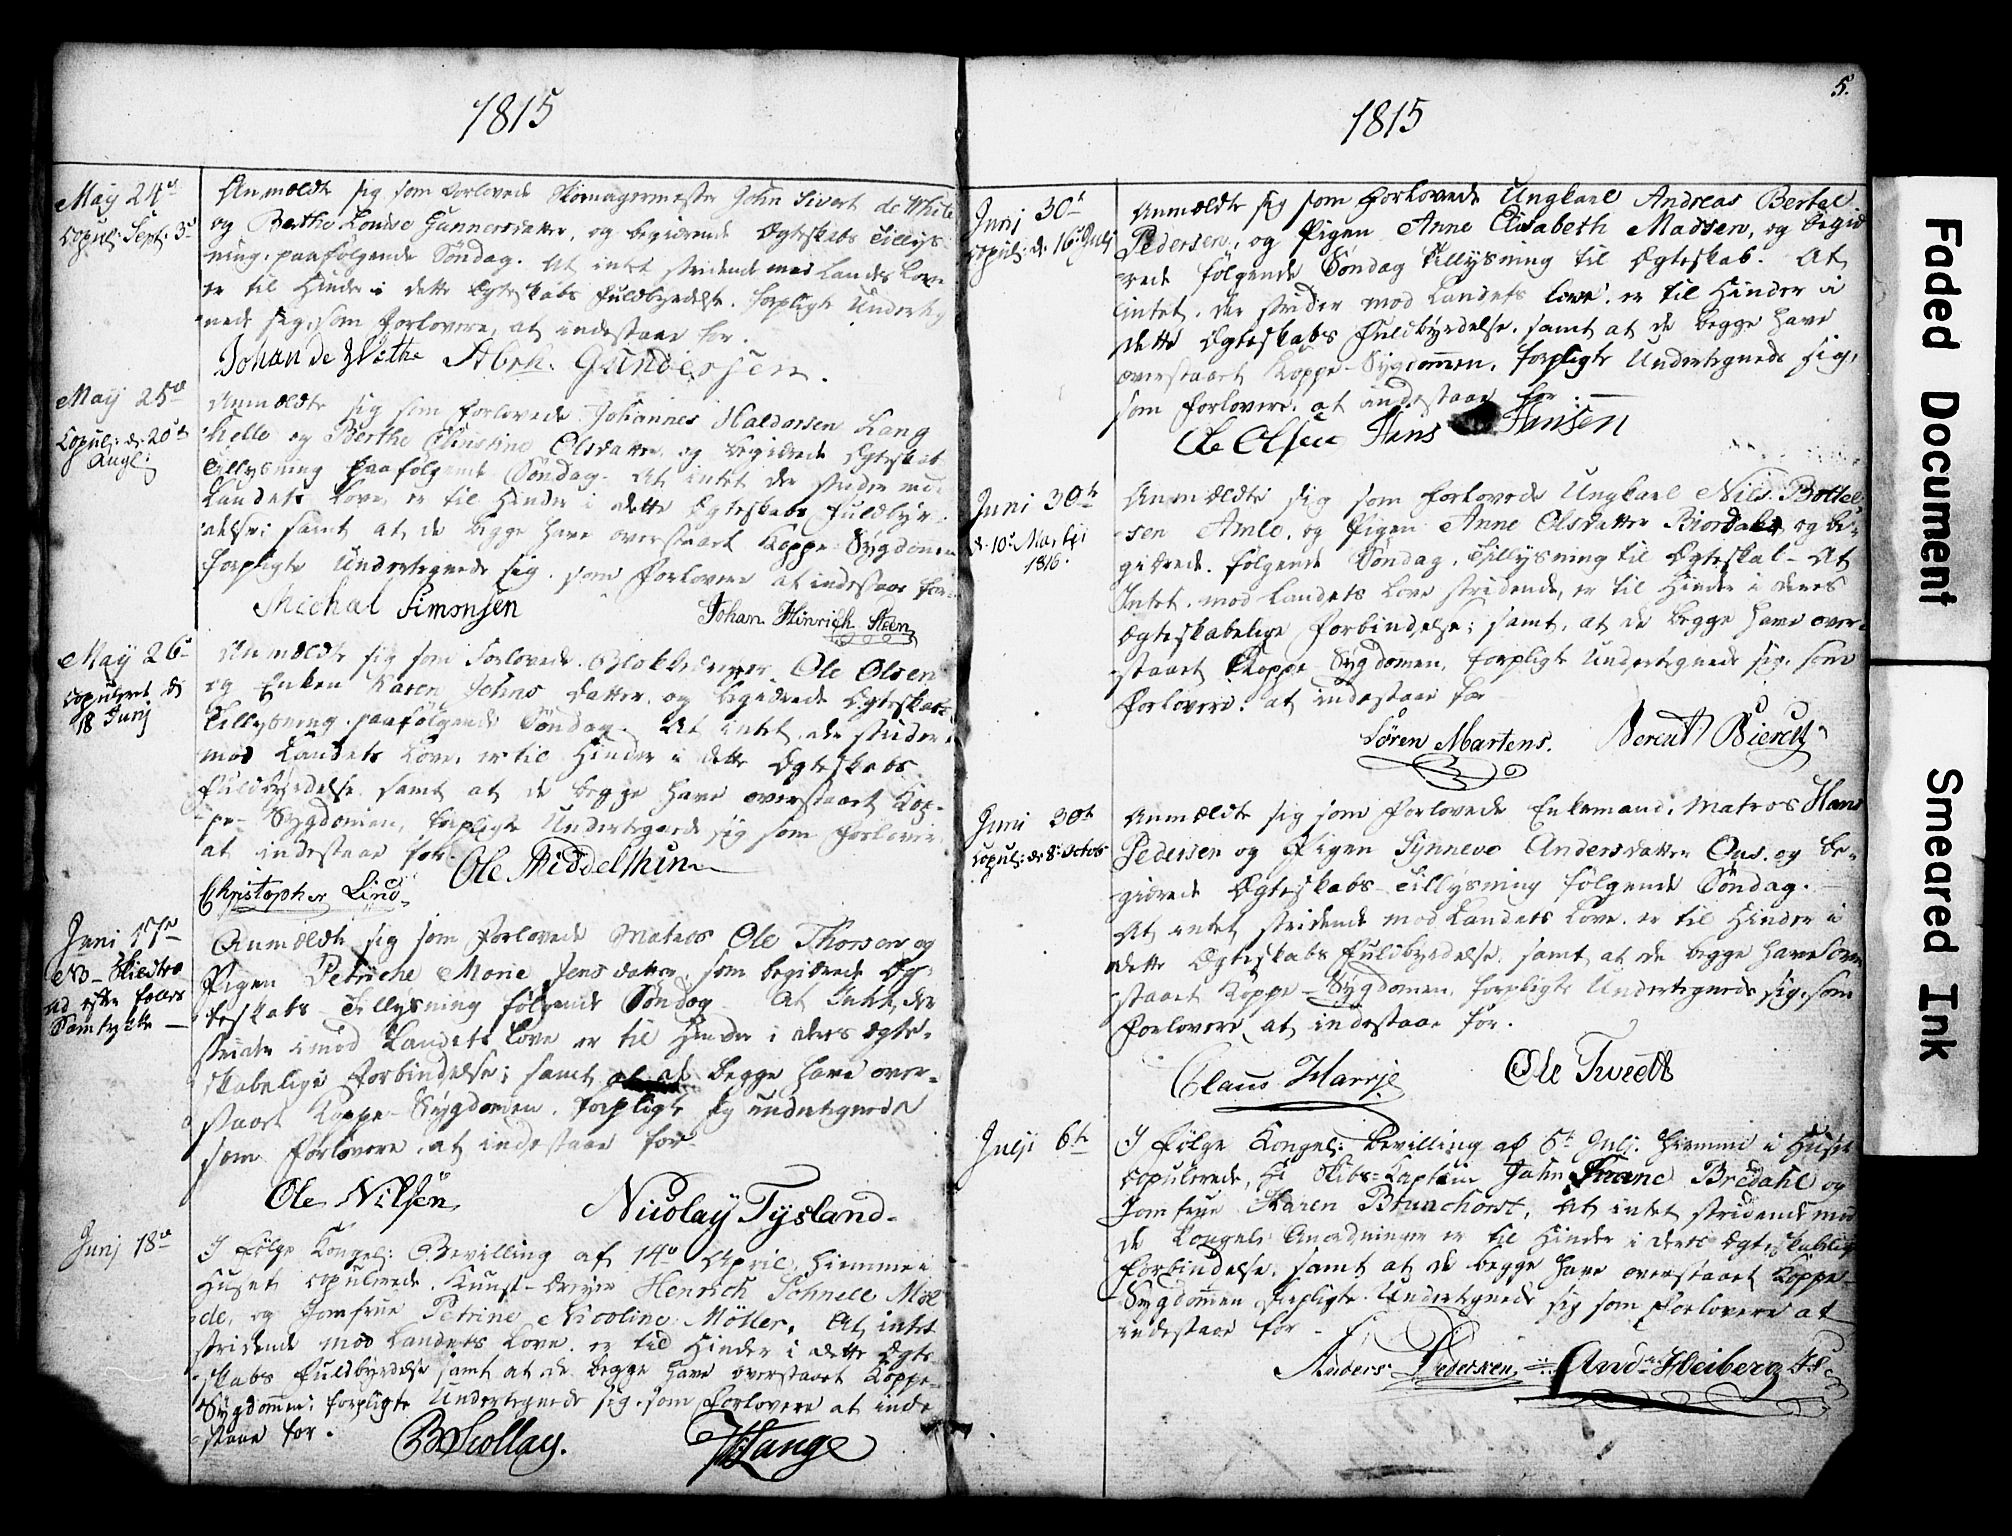 1815
May 24de
Copul: Sept: 3d
Anmeldte sig som forlovede Skomagermester John Sivert de Withe
og Berthe Lovise Gunnersdatter, og begierede Ægteskabs Tillys-
ning, paafølgende Søndag. At intet stridende mod Landets Love
er til Hinder i dette Ægteskabs Fuldbyrdelse, forpligte Underteg-
nede sig, som Forlovere, at indestaae for.
Johan de Withe Abrh. Gundersen.
May 25de
Copul: d: 20de
Aug:
Anmeldte sig som forlovede Johannes Haldorsen Lang
helle og Berthe Christine Olsdatter og begierede Ægteskabs
Tillysning paafølgende Søndag. At intet der strider mod
Landets Love, er til Hinder i dette Ægteskabs Fuldbyr-
delse; samt at de begge have overstaaet Koppe-Sygdommen
forpligte Undertegnede sig, som Forlovere at indestaae for
Michal Simonsen Johan Hinrich Steen
May 26de
Copuleret d:
18 Junj
Anmeldte sig som forlovede Blokkedreyer Ole Olsen
og Enken Karen Johnsdatter, og begierede Ægteskabs
Tillysning, paafølgende Søndag. At intet, der strider
mod Landets Love, er til Hinder i dette Ægteskabs
Fuldbyrdelse, samt at de begge have overstaaet Kop-
pe-Sygdommen, forpligte Undertegnede sig som Forlovere
at indestaae for.
Christopher Lind Ole Middelthun
Junj 17de
NB- Skiedtes
ad efter fælles
Samtykke —
Anmeldte sig som forlovede Matros Ole Thorsen og
Pigen Petriche Marie Jensdatter, som begierede Æg-
teskabs-Tillysning følgende Søndag. At Intet, der
strider imod Landets Love er til Hinder i deres Ægte-
skabelige Forbindelse; samt at begge have over-
staaet Koppe-Sygdommen, forpligte sig undertegnede
som Forlovere, at indestaae for
Ole Nilsen Nicolay Tysland
Junj 18de
I Følge Kongel: Bevilling af 14de April, hiemme i
Huset copulerede Kunst-Dreyer Henrich Schnell Møl
de, og Jomfrue Petrine Nicoline Möller. At intet
stridende mod Landets Love, er til Hinder i dette Ægte-
skabs Fuldbyrdelse samt at de begge have overstaaet Koppe-
Sygdommen; forpligte Undertegnede sig, som Forlovere at inde
staae for.
Lange
5.
1815
Junj 30te
Copul: d: 16de Julj
Anmeldte sig som forlovede Ungkarl Andreas Bertel
Pedersen, og Pigen Anne Elisabeth Madsen, og begie
rede følgende Søndag Tillysning til Ægteskab. At
intet, der strider mod Landets Love, er til Hinder i
dette Ægteskabs Fuldbyrdelse, samt at de begge have
overstaaet Koppe-Sygdommen, forpligte Undertegnede sig,
som Forlovere, at indestaae for. —
Ole Olsen Hans Hansen
Juni 30te
d: 10de Martji
1816.
Anmeldte sig som forlovede Ungkarl Nils Bottel
sen Amle, og Pigen Anne Olsdatter Riordal, og be-
gierede følgende Søndag, Tillysning til Ægteskab. At
Intet, mod Landets Love stridende, er til Hinder i deres
Ægteskabelige Forbindelse; samt, at de begge have over-
staaet Koppe-Sygdommen, forpligte Undertegnede sig, som
Forlovere, at indestaae for
Søren Martens. Berent Bierck
Juni 30te
Copul: d: 8: Octob
Anmeldte sig som forlovede Enkemand, Matros Hans
Pedersen og Pigen Synneve Andersdatter Ous, og be-
gierede Ægteskabs-Tillysning følgende Søndag. —
At intet stridende mod Landets Love, er til Hinder i
dette Ægteskabs Fuldbyrdelse, samt at de begge have over
staaet Koppe-Sygdommen, forpligte Undertegnede sig, som
Forlovere, at indestaae for.
Claus Harrje Ole Tweedt
Julji 6te
I Følge Kongel: Bevilling af 5te Julj hiemme i Huset
copulerede, Hr Skibs-Kaptein John Franc Bredahl og
Jomfrue Karen Brunchorst. At intet stridende mod
de Kongel: Anordninger er til Hinder i deres Ægteskabelige
Forbindelse, samt at de begge have overstaaet Koppe-
Sygdommen forpligte Undertegnede sig som Forlovere at
indestaae for
Anders Pedersen And: Heiberg
Faded Document
Smeared Ink